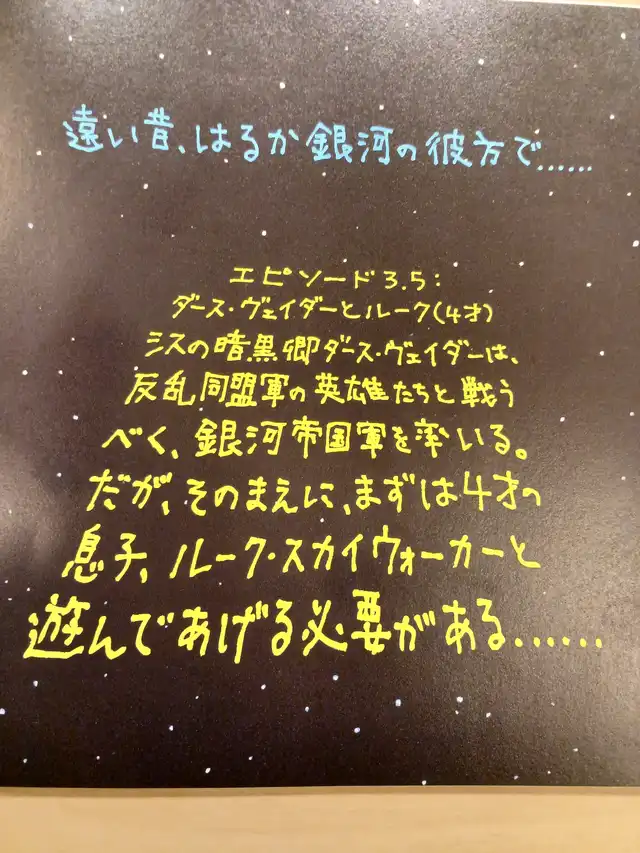 遠い昔、はるか銀河の彼方で……
エピソード3.5:
ダース・ヴェイダーとルーク(4才)
シスの暗黒卿ダース・ヴェイダーは、
反乱同盟軍の英雄たちと戦う
べく、銀河帝国軍を率いる。
だが、そのまえに、まずは4才の
息子、ルーク・スカイウォーカーと
遊んであげる必要がある……